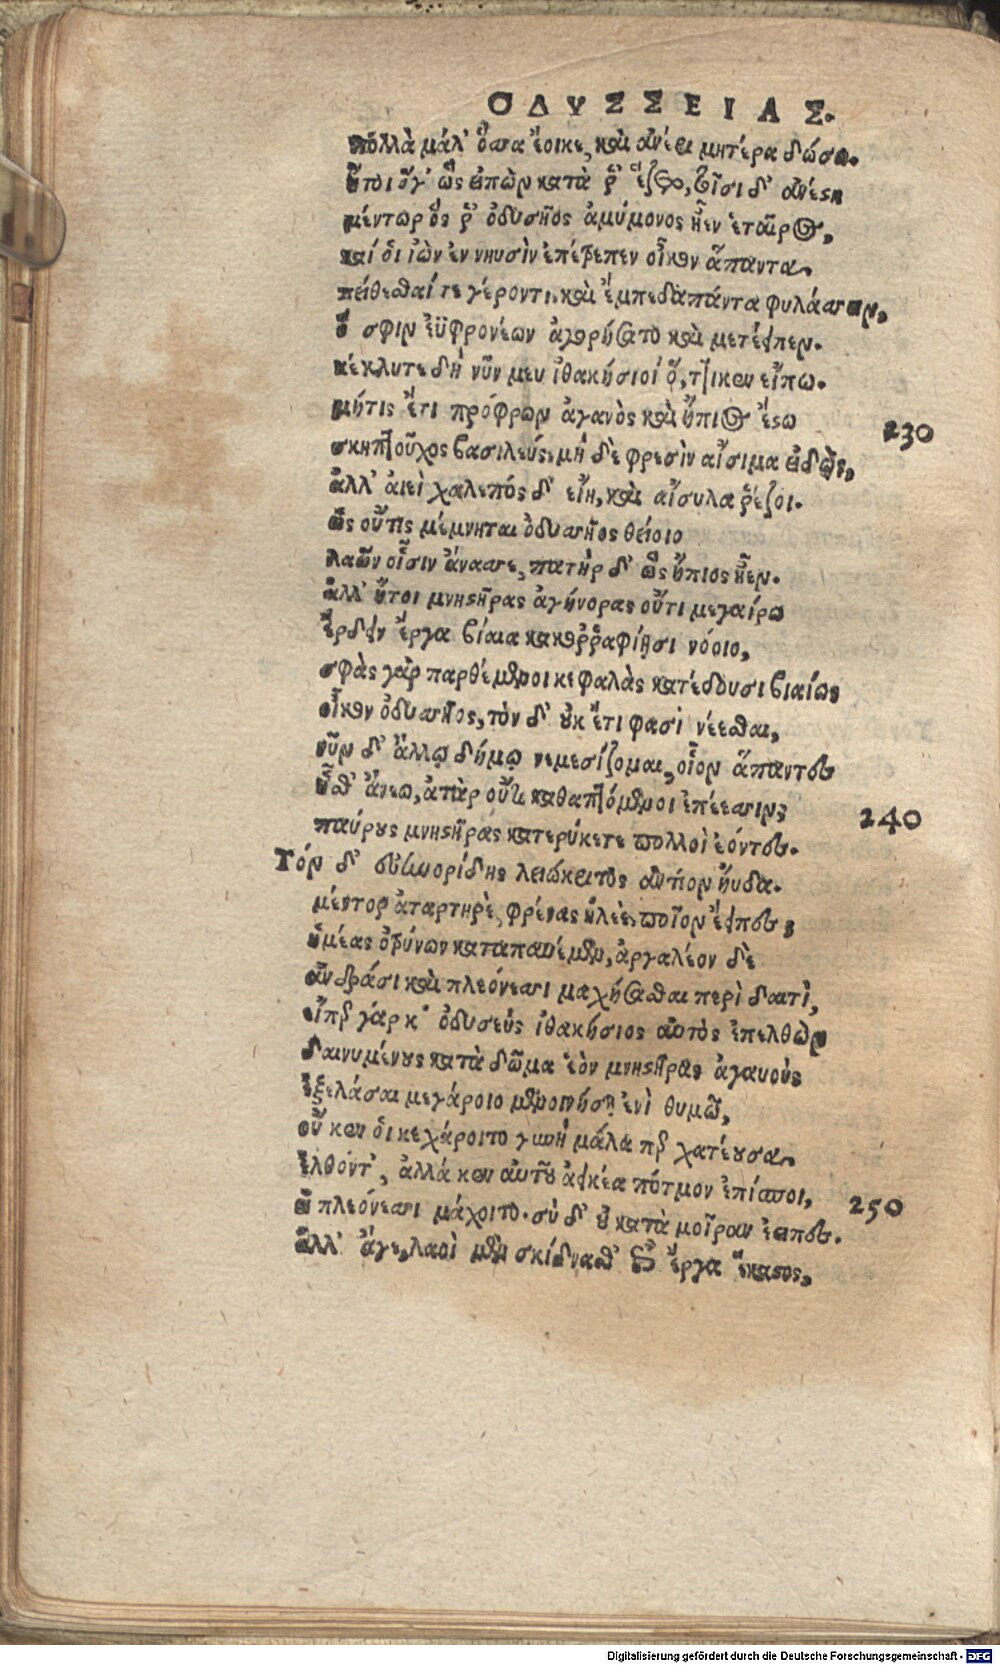 ΟΔΥΣΣΕΙΑΣ.
πολλὰ μάλ' ὅσσα ἔοικε, καὶ ἀνέρι μητέρα δώσω.
ἤτοι ὅγ' ὣς εἰπὼν κατὰ ῥ' ἕζετο, τοῖσι δ' ἀνέστη
μέντωρ ὅς ῥ' ὀδυσῆος ἀμύμονος ἦεν ἑταῖρος,
καί οἱ ἰὼν ἐν νηυσὶν ἐπέτρεπεν οἶκον ἅπαντα,
πείθεσθαί τε γέροντι, καὶ ἔμπεδα πάντα φυλάσσειν,
ὅ σφιν ἐϋφρονέων ἀγορήσατο καὶ μετέειπεν.
κέκλυτε δὴ νῦν μευ ἰθακήσιοι ὅ,ττικεν εἴπω.
μήτις ἔτι πρόφρων ἀγανὸς καὶ ἤπιος ἔστω
230
σκηπτοῦχος βασιλεύς, μὴ δὲ φρεσὶν αἴσιμα εἰδὼς,
ἀλλ' αἰεὶ χαλεπός δ' εἴη, καὶ αἴσυλα ῥέζοι.
ὣς οὔτις μέμνηται ὀδυσσῆος θείοιο
λαῶν οἷσιν ἄνασσε, πατὴρ δ' ὣς ἤπιος ἦεν.
ἀλλ' ἤτοι μνηστῆρας ἀγήνορας οὔτι μεγαίρω
ἔρδειν ἔργα βίαια κακορῥαφίῃσι νόοιο,
σφὰς γὰρ παρθέμενοι κεφαλὰς κατέδουσι βιαίως
οἶκον ὀδυσσῆος, τὸν δ' οὐκ ἔτι φασὶ νέεσθαι,
νῦν δ' ἄλλῳ δήμῳ νεμεσίζομαι, οἷον ἅπαντες
ἧσθ' ἄνεῳ, ἀτὰρ οὔτι καθαπτόμενοι ἐπέεσσιν,
240
παύρους μνηστῆρας κατερύκετε πολλοὶ ἐόντες.
Τόν δ' εὐηνορίδης λειώκριτος ἀντίον ηὔδα.
μέντορ ἀταρτηρὲ, φρένας ἠλεὲ, ποῖον ἔειπες,
ἡμέας ὀτρύνων καταπαυέμεν, ἀργαλέον δὲ
ἀνδράσι καὶ πλεόνεσσι μαχήσασθαι περὶ δαιτὶ,
εἴπερ γάρ κ' ὀδυσεὺς ἰθακήσιος αὐτὸς ἐπελθὼν
δαινυμένους κατὰ δῶμα ἑὸν μνηστῆρας ἀγαυοὺς
ἐξελάσαι μεγάροιο μενοινήσῃ ἐνὶ θυμῷ,
οὔ κεν οἱ κεχάροιτο γυνὴ μάλα περ χατέουσα,
ἐλθόντ', ἀλλά κεν αὐτοῦ ἀεικέα πότμον ἐπίσποι,
250
εἰ πλεόνεσσι μάχοιτο. σὺ δ' οὐ κατὰ μοῖραν ἔειπες.
ἀλλ' ἄγε, λαοὶ μὲν σκίδνασθ' ἐπὶ ἔργα ἕκαστος,
Digitalisierung gefördert durch die Deutsche Forschungsgemeinschaft - DFG